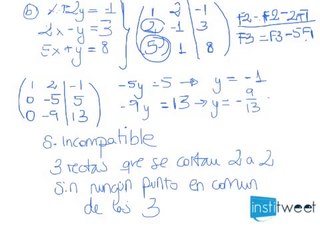 b) x+2y=1
2x-y=3
5x+y=8
(1 2 | -1
2 -1 | 3
5 1 | 8)
F2 = F2-2F1
F3 = F3-5F1
(1 2 | -1
0 -5 | 5
0 -9 | 13)
-5y=5 → y=-1
-9y=13 → y=-9/13
S. Incompatible
3 rectas que se cortan 2 a 2
sin ningún punto en comun
de las 3
institweet